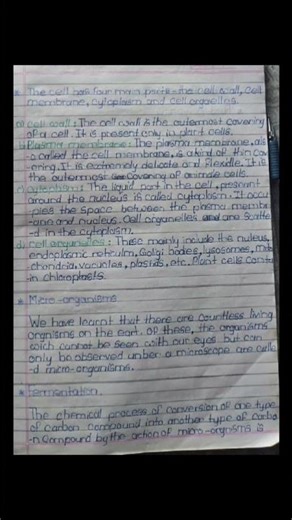 * The cell has four main parts - the cell wall, cell
membrane, cytoplasm and cell organelles.
a) cell wall : The cell wall is the outermost covering
of a cell. It is present only in plant cells.
b) Plasma membrane : The plasma membrane, als-
o called the cell membrane, is a kind of thin cov
ering. It is extremely delicate and flexible. It is
the outermost covering of animale cells.
c) cytoplasm : The liquid part in the cell, present
around the nucleus is called cytoplasm. It occu-
pies the space between the plasma membr
ane and nucleus. Cell organelles are scatte
-d in the cytoplasm.
d) cell organelles : These mainly include the nuleus,
endoplasmic reticulm, Golgi bodies, lysosomes, mito
-chondria, vacuoles, plastids, etc. Plant cells conta
-in chloroplasts.
* Micro-organisms
We have learnt that there are countless living
organisms on the eart. Of these, the organisms
wich cannot be seen with our eyes but can
only be observed unber a microscope are calle
-d micro-organisms.
* Fermentation
The chemical process of conversion of one type
of carbon compound into another type of carbo
-n compound by the action of micro-organisms is